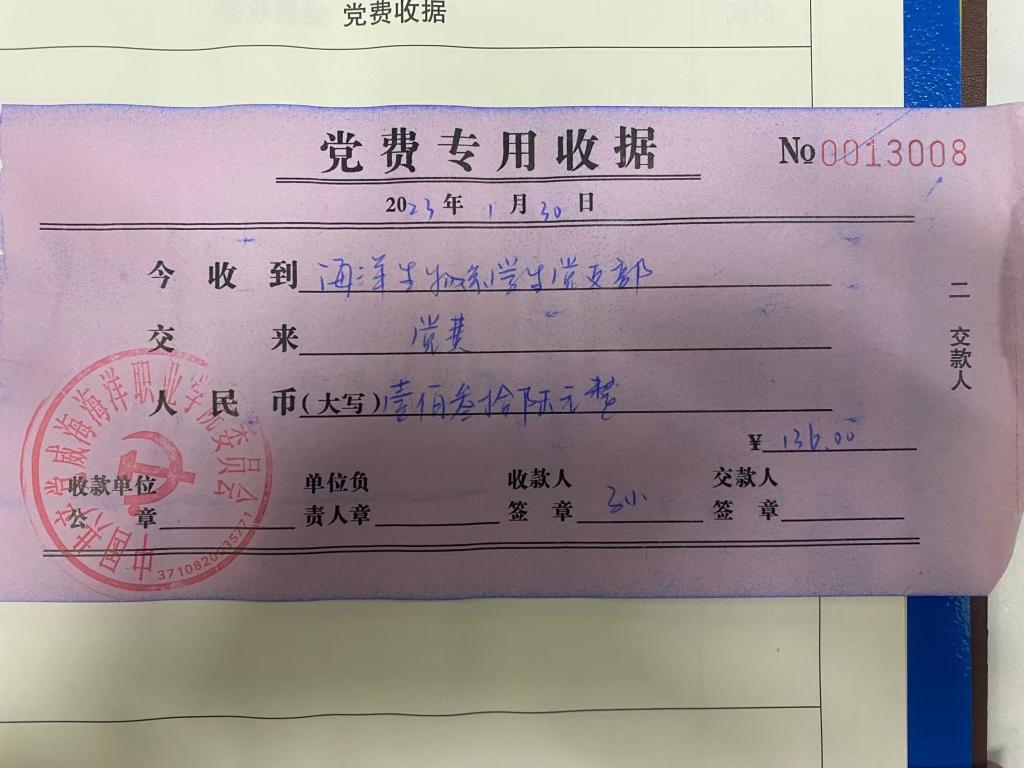 党费收据
党费专用收据
№0013008
2023年1月30日
今收到 海洋生物系学生党支部
交来 党费
人民币(大写)壹佰叁拾陆元整
¥ 136.00
收款单位公章
单位负责人章
收款人签章
交款人签章
二 交款人
中国共产党威海海洋职业学院委员会
3710820035771